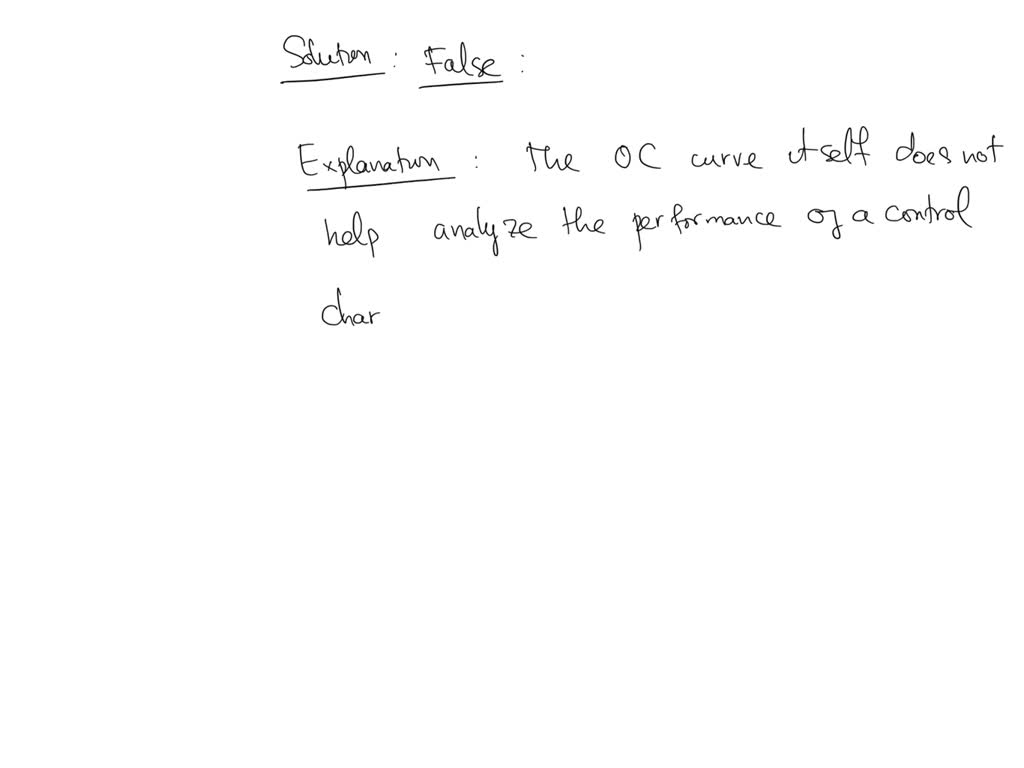 Solution : False :
Explanation : The OC curve itself does not
help analyze the performance of a control
char